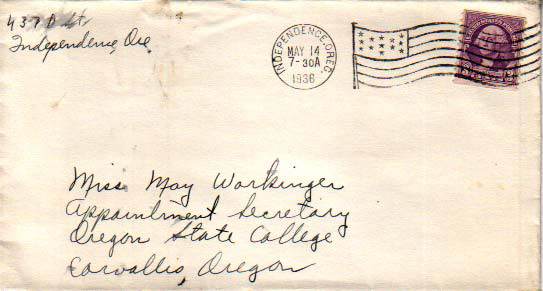 437 D St.
Independence, Ore.
INDEPENDENCE, OREG.
MAY 14
7-30A
1936
Miss May Workinger
Appointment Secretary
Oregon State College
Corvallis, Oregon